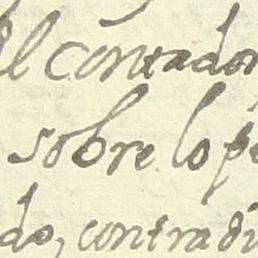 el contador
sobre lo p
do, contradi